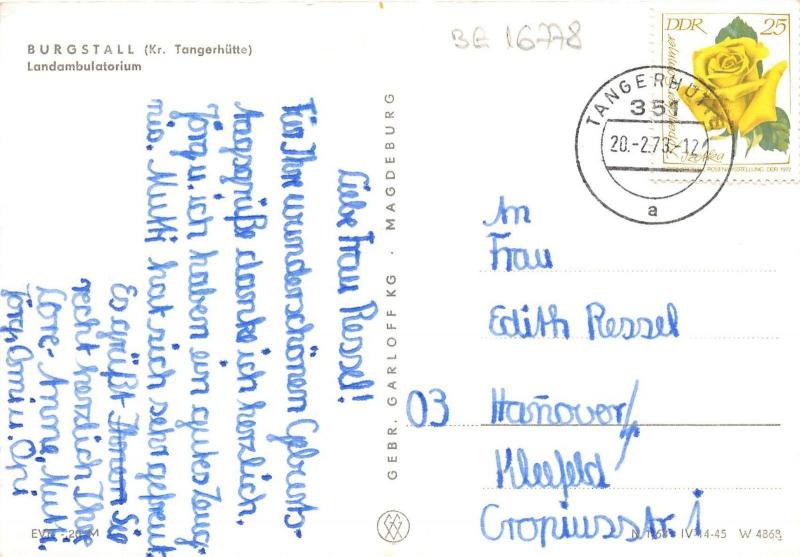 BURGSTALL (Kr. Tangerhütte)
Landambulatorium
BE 16778
DDR 25
TANGERHÜTTE
351
20.-2.73.-12
a
Liebe Frau Ressel!
Für Ihre wunderschönen Geburts-
tagsgrüße danke ich herzlich.
Jörg u. ich haben ein gutes Zeug-
nis. Mutti hat sich sehr gefreut
Es grüßt Ihnen Sie
recht herzlich Ihre
Lore-Anne, Mutti
Jörg, Omi u. Opi
GEBR. GARLOFF KG · MAGDEBURG
An
Frau
Edith Ressel
03 Hañover/
Kleefeld/
Cropiusstr. 1
IV-14-45 W 4868